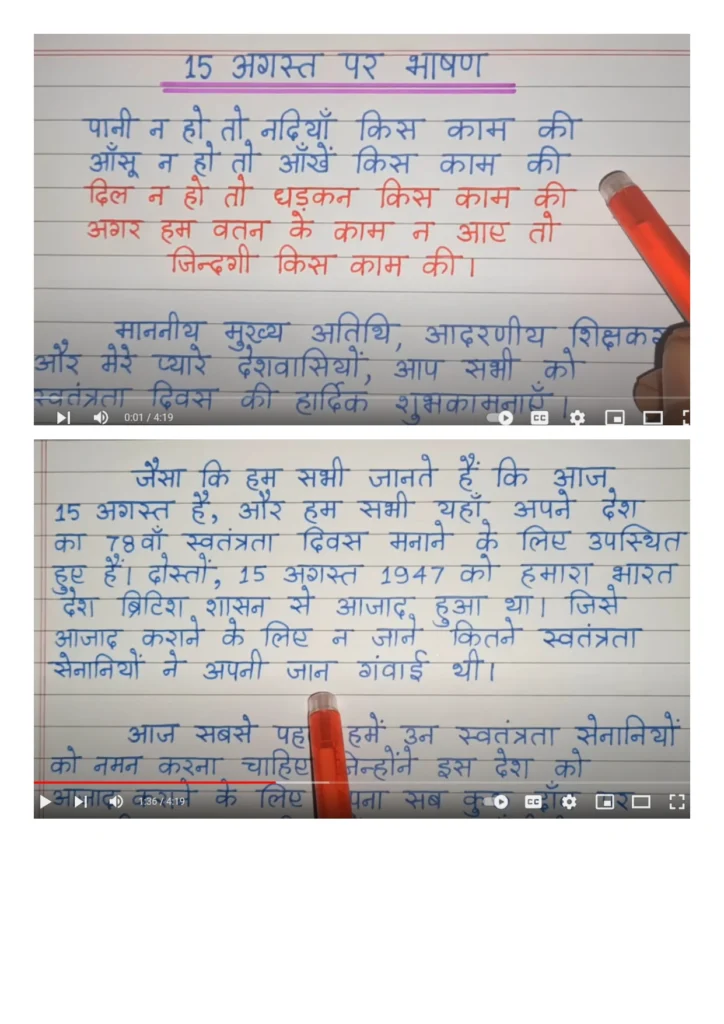 15 अगस्त पर भाषण
पानी न हो तो नदियाँ किस काम की
आँसू न हो तो आँखें किस काम की
दिल न हो तो धड़कन किस काम की
अगर हम वतन के काम न आए तो
जिन्दगी किस काम की।
माननीय मुख्य अतिथि, आदरणीय
और मेरे प्यारे देशवासियों, आप सभी को
स्वतंत्रता दिवस की हार्दिक शुभकामनाएँ।
0:01 / 4:19
CC
जैसा कि हम सभी जानते हैं कि आज
15 अगस्त है, और हम सभी यहाँ अपने देश
का 78वाँ स्वतंत्रता दिवस मनाने के लिए उपस्थित
हुए हैं। दोस्तों, 15 अगस्त 1947 को हमारा भारत
देश ब्रिटिश शासन से आजाद हुआ था। जिसे
आजाद कराने के लिए न जाने कितने स्वतंत्रता
सेनानियों ने अपनी जान गंवाई थी।
आज सबसे हमें उन स्वतंत्रता सेनानियों
को नमन करना चाहिए इस देश को
आजाद के लिए सब
1:36 / 4:19
CC